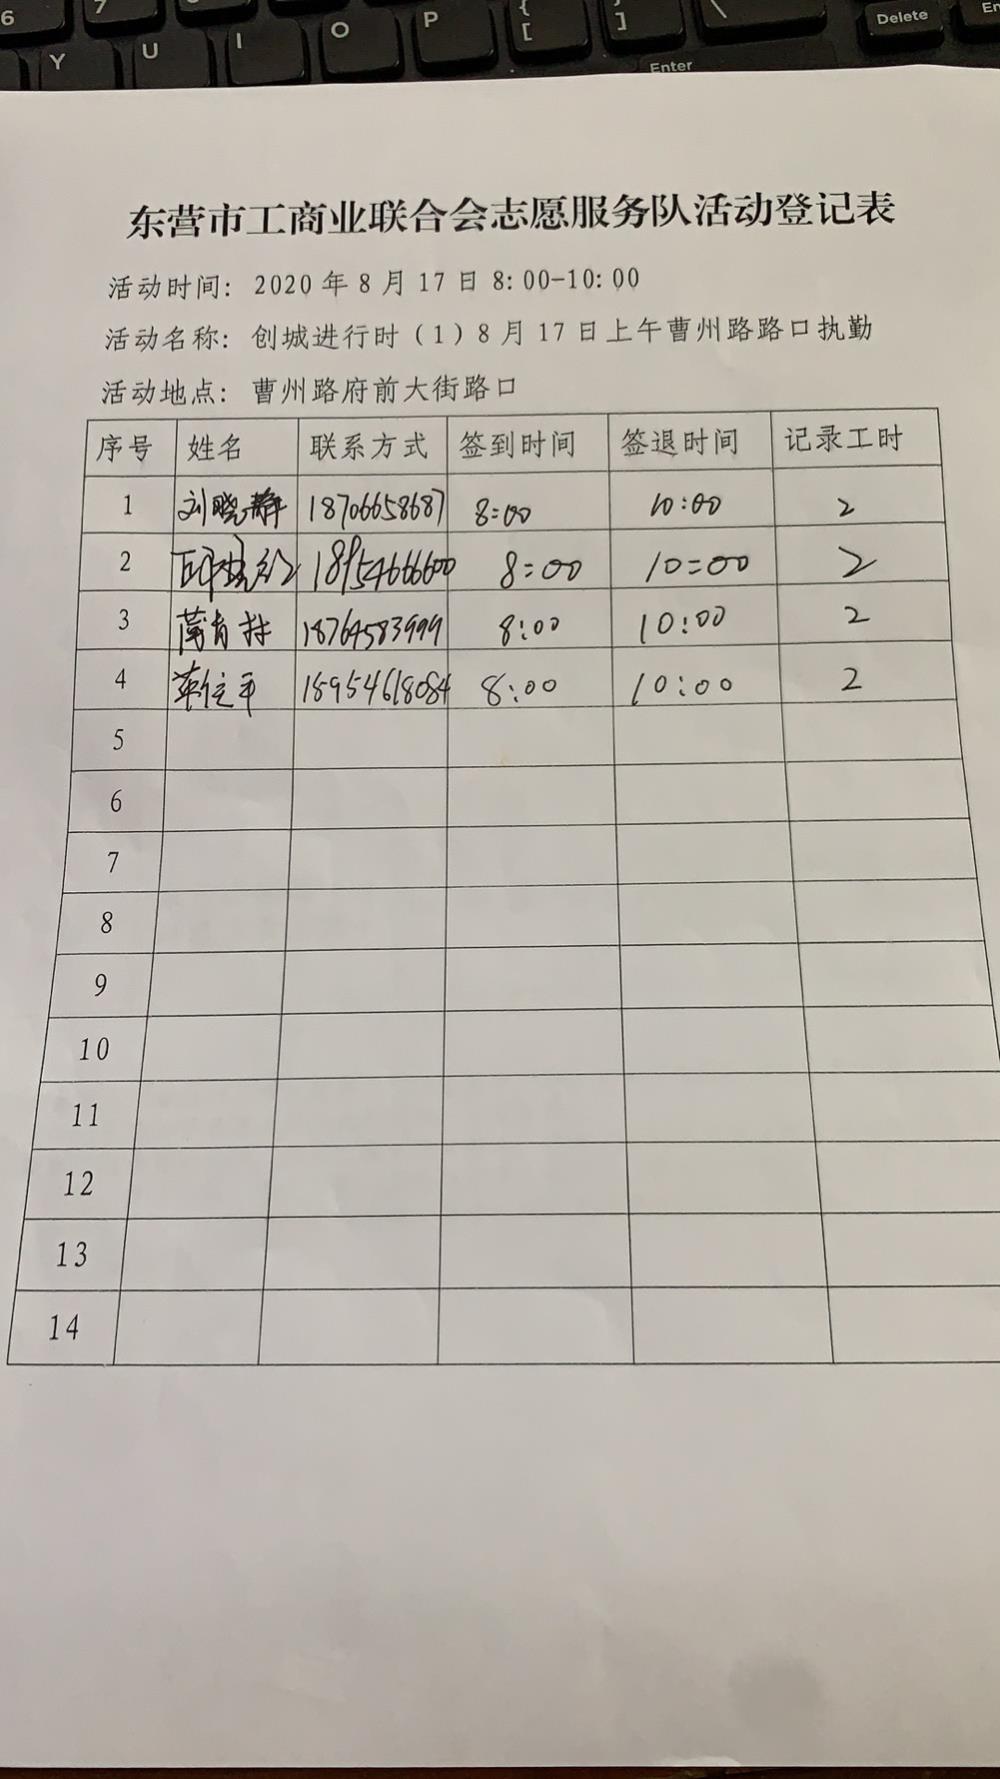 6 7 { [ } ] \ Delete En
Y U I O P Enter
东营市工商业联合会志愿服务队活动登记表
活动时间: 2020 年 8 月 17 日 8: 00-10: 00
活动名称: 创城进行时（1）8 月 17 日上午曹州路路口执勤
活动地点: 曹州路府前大街路口
序号 姓名 联系方式 签到时间 签退时间 记录工时
1 刘晓静 18706658687 8:00 10:00 2
2 18954666600 8:00 10:00 2
3 18764583999 8:00 10:00 2
4 18954618084 8:00 10:00 2
5
6
7
8
9
10
11
12
13
14